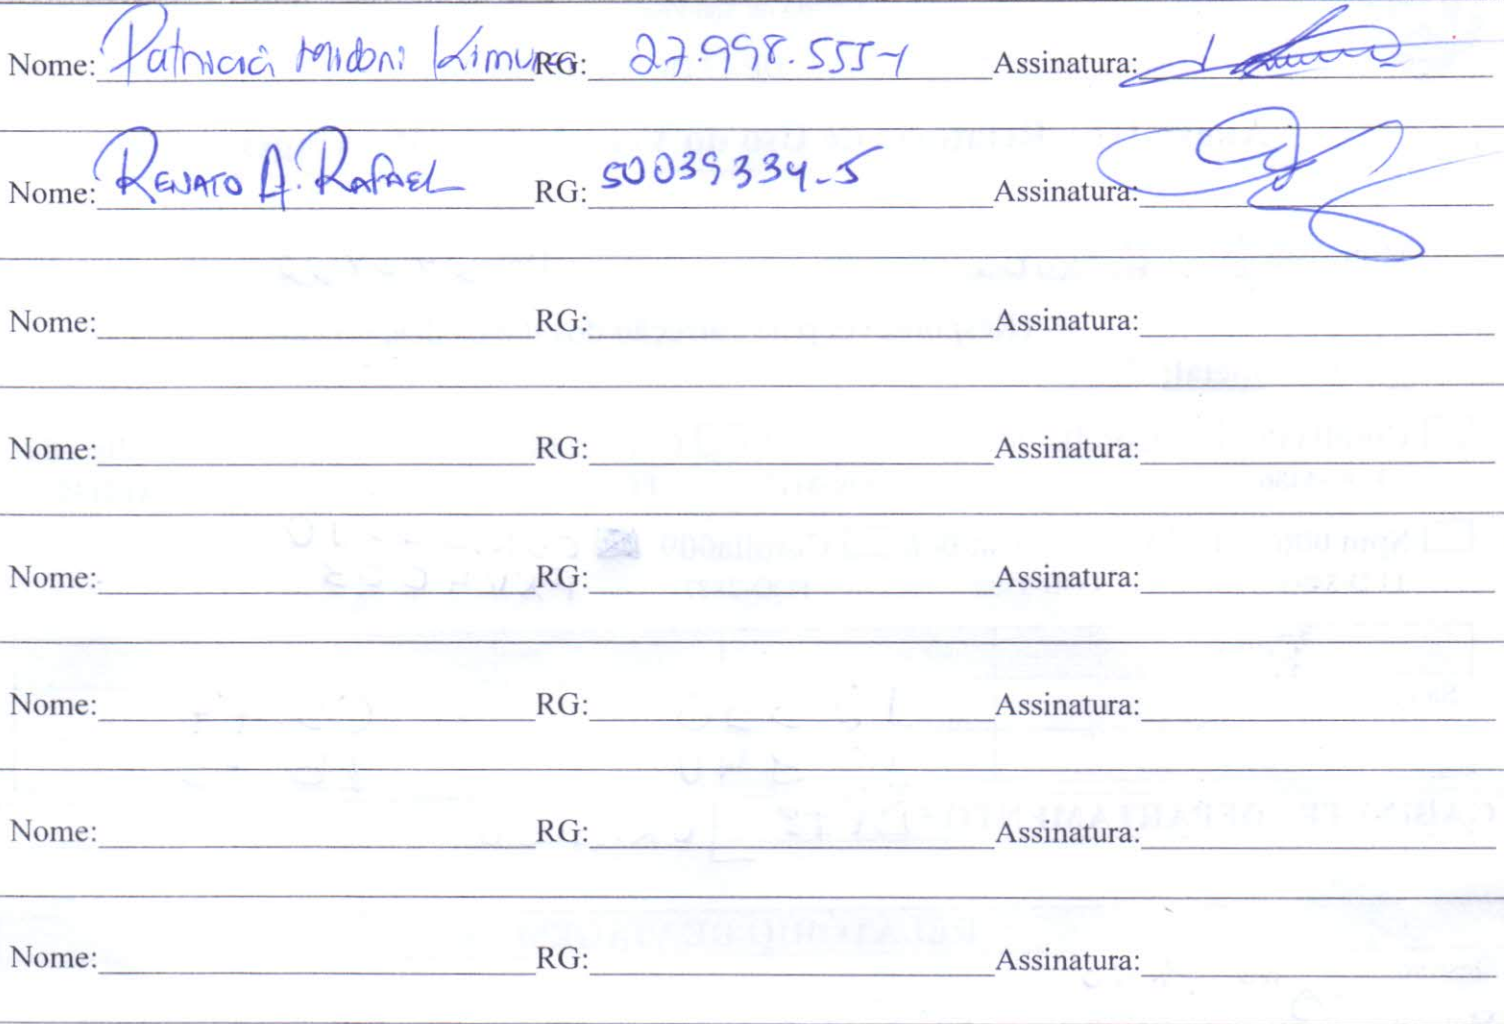 Nome: Patricia Midori Kimura RG: 27.998.555-1 Assinatura:
Nome: RENATO A. RAFAEL RG: 50039334-5 Assinatura:
Nome: RG: Assinatura:
Nome: RG: Assinatura:
Nome: RG: Assinatura:
Nome: RG: Assinatura:
Nome: RG: Assinatura:
Nome: RG: Assinatura: